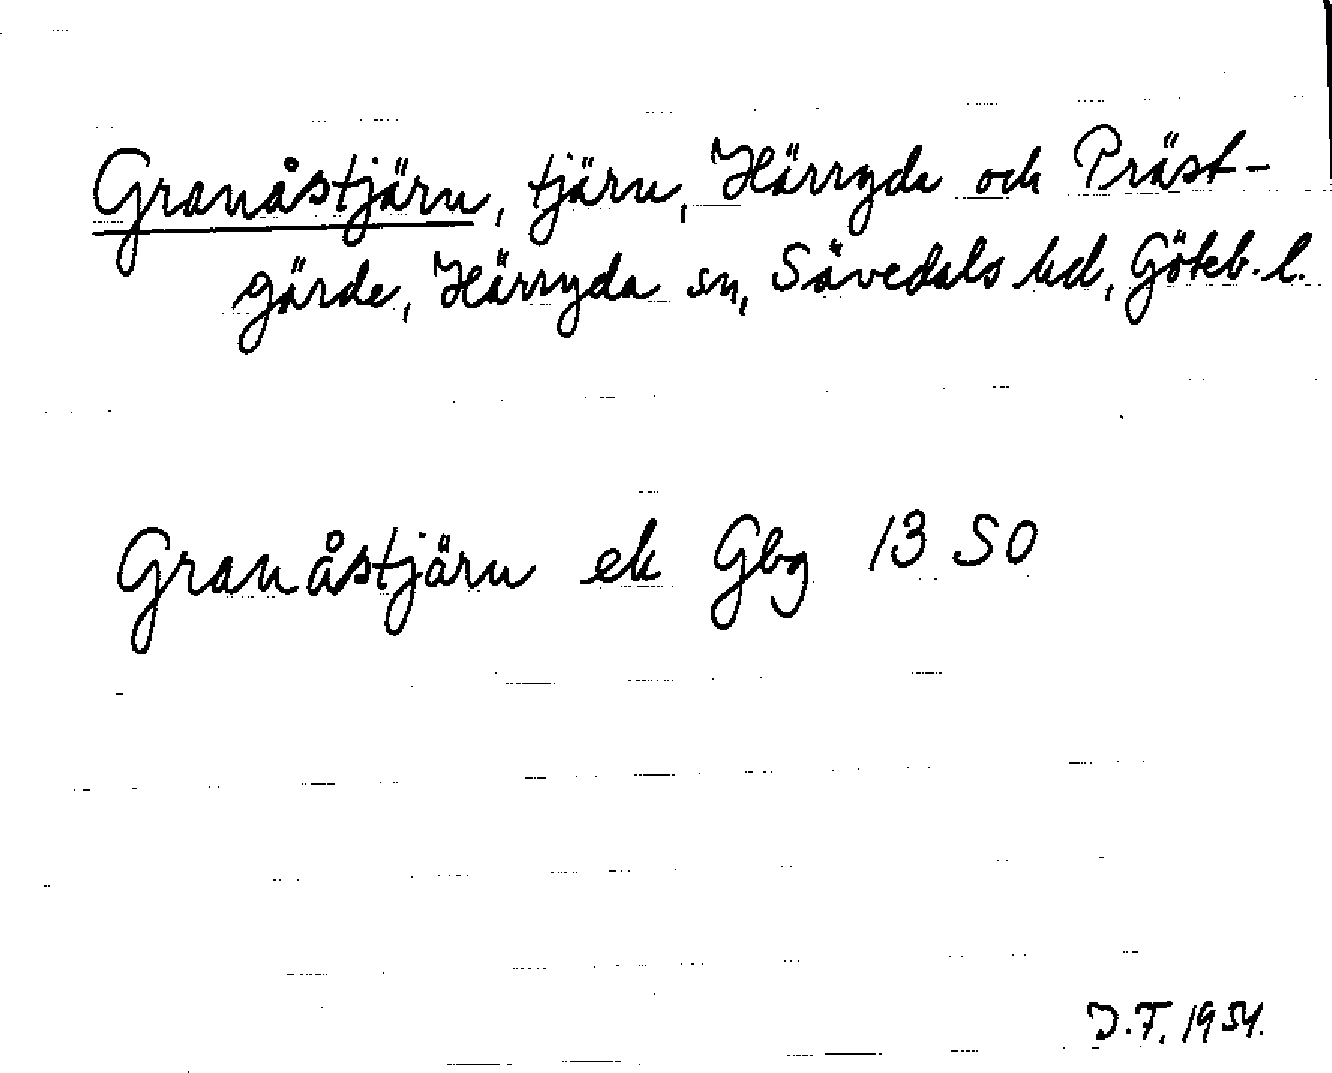 Granåstjärn, tjärn, Härryda och Präst-
gärde, Härryda sn, Sävedals hd, Göteb. l.
Granåstjärn ek Gbg 13 SO
J.T. 1954.